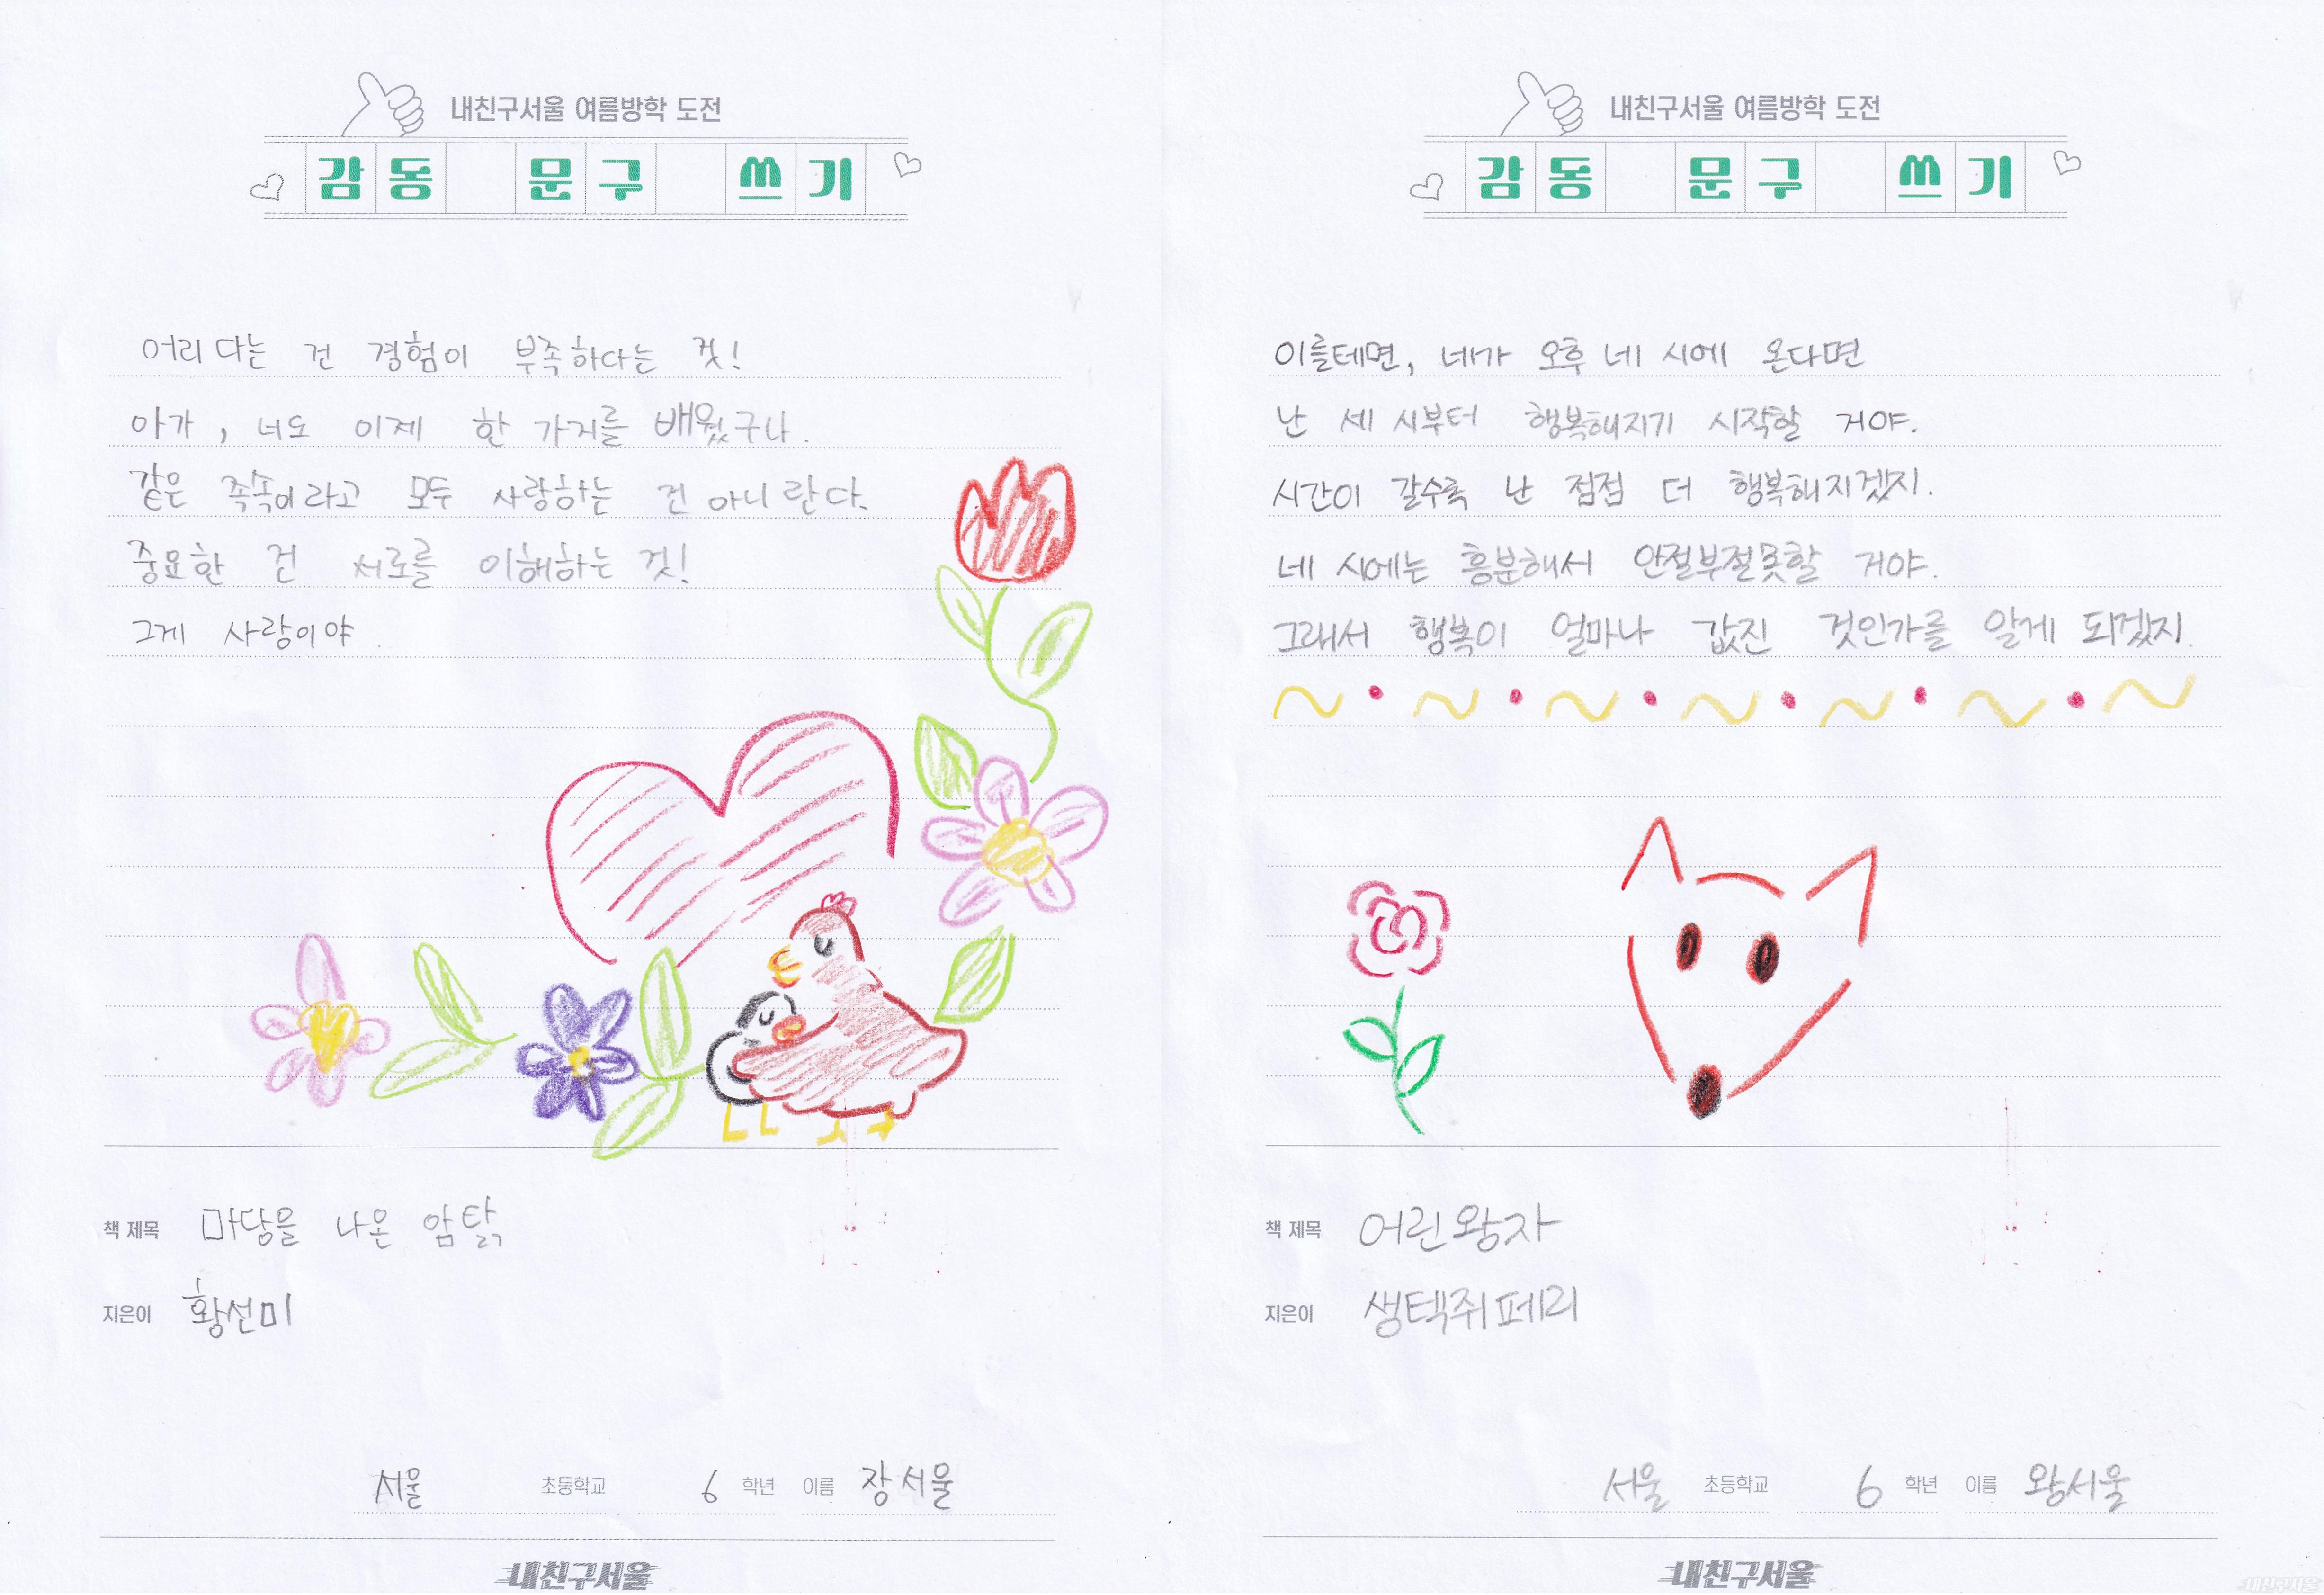 내친구서울 여름방학 도전
감동 문구 쓰기
어리다는 건 경험이 부족하다는 것!
아가, 너도 이제 한 가지를 배웠구나.
같은 족속이라고 모두 사랑하는 건 아니란다.
중요한 건 서로를 이해하는 것!
그게 사랑이야.
책 제목 마당을 나온 암탉
지은이 황선미
서울 초등학교 6 학년 이름 장서울
내친구서울
내친구서울 여름방학 도전
감동 문구 쓰기
이를테면, 네가 오후 네 시에 온다면
난 세 시부터 행복해지기 시작할 거야.
시간이 갈수록 난 점점 더 행복해지겠지.
네 시에는 흥분해서 안절부절못할 거야.
그래서 행복이 얼마나 값진 것인가를 알게 되겠지.
책 제목 어린왕자
지은이 생텍쥐페리
서울 초등학교 6 학년 이름 왕서울
내친구서울
내친구서울